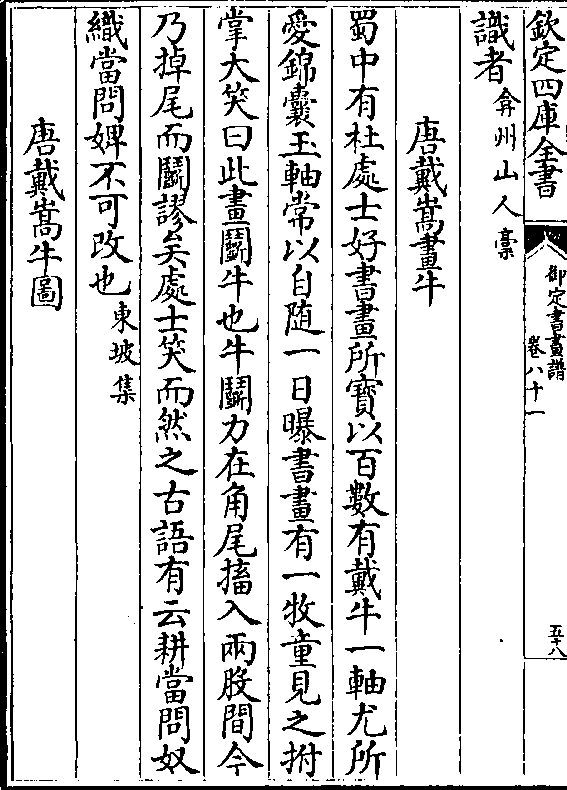 欽定四庫全書
御定書畫譜
卷八十一
五十八
識者弇州山人稾
唐戴嵩畫牛
蜀中有杜處士好書畫所寶以百數有戴牛一軸尤所
愛錦囊玉軸常以自随一日曝書畫有一牧童見之拊
掌大笑曰此畫鬭牛也牛鬭力在角尾搐入兩股間今
乃掉尾而鬭謬矣處士笑而然之古語有云耕當問奴
織當問婢不可改也東坡集
唐戴嵩牛圖